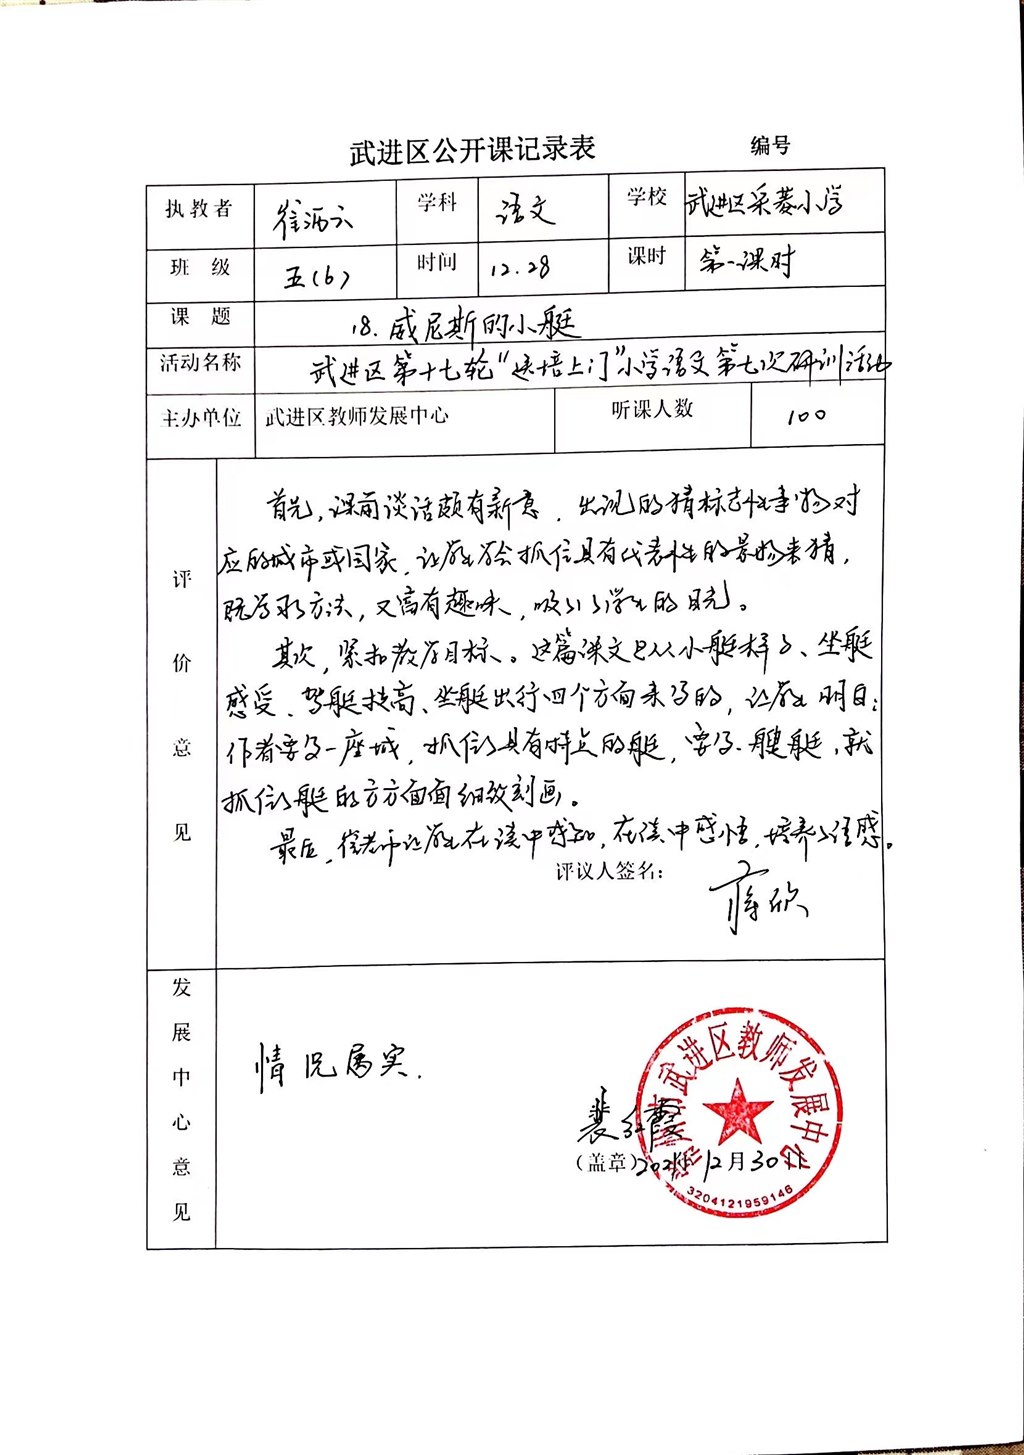 武进区公开课记录表 编号
执教者 徐 学科 语文 学校 武进区采菱小学
班级 五(6) 时间 12.28 课时 第一课时
课题 18.威尼斯的小艇
活动名称 武进区第十七轮“送培上门”小学语文第七次研训活动
主办单位 武进区教师发展中心 听课人数 100
评价意见
首先，课前谈话颇有新意，出现的猜标志性事物对
应的城市或国家，让学生学会抓住具有代表性的景物来猜，
既学习方法，又富有趣味，吸引了学生的目光。
其次，紧扣教学目标。这篇课文是从小艇样子、坐艇
感受、驾艇技高、坐艇出行四个方面来写的，让学生明白：
作者要写一座城，抓住了具有特点的艇，要写艇，就
抓住了艇的方方面面细致刻画。
最后，徐老师让学生在读中感知，在读中感悟，培养了语感。
评议人签名：
蒋欣
发展中心意见
情况属实.
裴红霞
（盖章）2021年12月30日
武进区教师发展中心
3204121959146